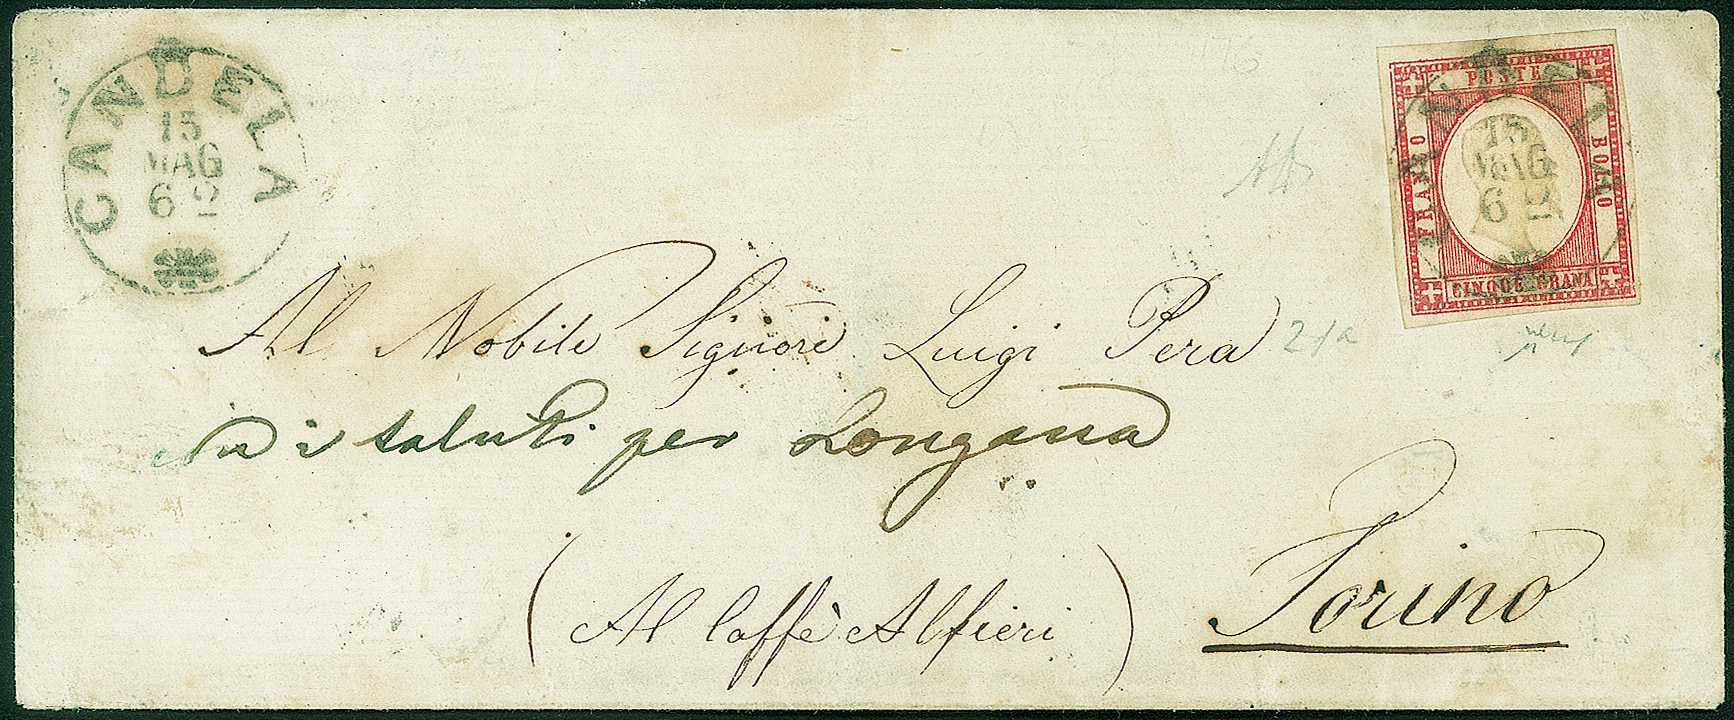 CANDELA
15
MAG
62
POSTE
FRANCO
BOLLO
CINQUE GRANA
15
MAG
62
Al Nobile Signore Luigi Pera
21a
con i saluti per Longana
(Al Caffè Alfieri)
Torino